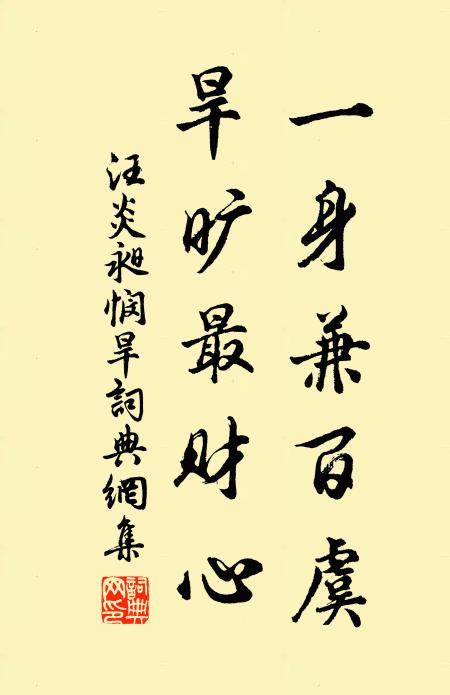 一身兼百虞
旱旷最财心
汪炎昶憫旱詞典網集
詞典
网印